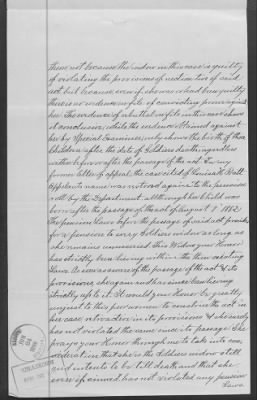 these not because the widow in this case is guilty
of violating the provisions of section two of said
act but because even if she was or had been guilty
there is no evidence of convicting power against
her. The evidence of rebuttal on file in this case shows
it conclusive, while the evidence obtained against
her by Special Examiner, only shows the birth of three
Children after the date of Soldiers death, regardless
whether before or after the passage of the act. In my
former letter of appeal, the case cited of Hall
Appellants name was restored again to the pension
roll by the Department although her child was
born after the passage of the act of August 7 1882.
The pension Laws before the passage of said act provide
for a pension to every Soldiers widow as long as
she remains unmarried. This Widow your Honor
has strictly been living within the then existing
Laws. As soon as aware of the passage of the act & its
provisions, she again and has since been living
strictly up to it. It would your Honor be greatly
unjust to this poor woman to construe the act in
her case retroactive in its provisions & she surely
has not violated the same since its passage. She
prays your Honor through me to take into con-
sideration that she is the Soldiers widow still
and intends to be till death and that she
never of aimed has not violated any pension
Laws.